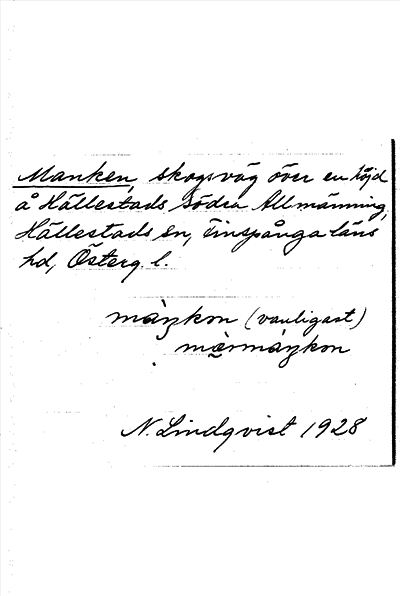 Manken, skogsväg över en höjd
å Hällestads södra Allmänning,
Hällestads sn, Finspånga läns
hd, Österg. l.
màŋkon (vanligast)
mærmàŋkon
N. Lindqvist 1928